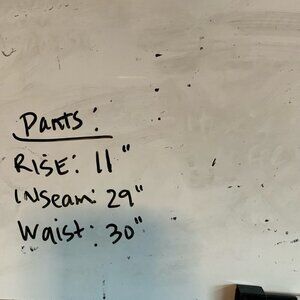 Pants:
RISE: 11"
INseam: 29"
Waist: 30"